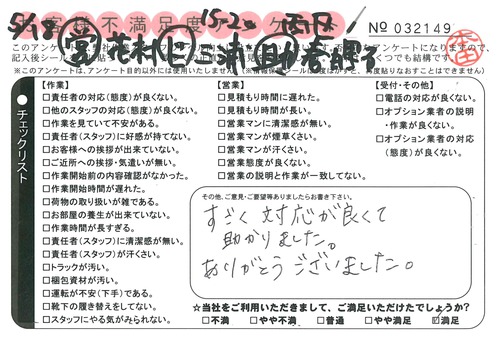 お客様不満足度アンケート
5/18 15-20 西区
No 032149
このアンケートは、
記入後シール
くつでも結構です。
※このアンケートは、アンケート目的以外には使用いたしません。
番
チェックリスト
【作業】
□責任者の対応(態度)が良くない。
□他のスタッフの対応(態度)が良くない。
□作業を見ていて不安がある。
□責任者(スタッフ)に好感が持てない。
□お客様への挨拶が出来ていない。
□ご近所への挨拶・気遣いが無い。
□作業開始前の内容確認がなかった。
□作業開始時間が遅れた。
□荷物の取り扱いが雑である。
□お部屋の養生が出来ていない。
□作業時間が長すぎる。
□責任者(スタッフ)に清潔感が無い。
□責任者(スタッフ)が汗くさい。
□トラックが汚い。
□梱包資材が汚い。
□運転が不安(下手)である。
□靴下の履き替えをしてない。
□スタッフにやる気がみられない。
【営業】
□見積もり時間に遅れた。
□見積もり時間が長い。
□営業マンに清潔感が無い。
□営業マンが煙草くさい。
□営業マンが汗くさい。
□営業態度が良くない。
□営業の説明と作業が一致してない。
【受付・その他】
□電話の対応が良くない。
□オプション業者の説明
・作業が良くない。
□オプション業者の対応
(態度)が良くない。
その他、ご意見・ご要望等ありましたらお書き下さい。
すごく対応が良くて
助かりました。
ありがとうございました。
☆当社をご利用いただきまして、ご満足いただけたでしょうか?
□不満 □やや不満 □普通 □やや満足 ☑満足